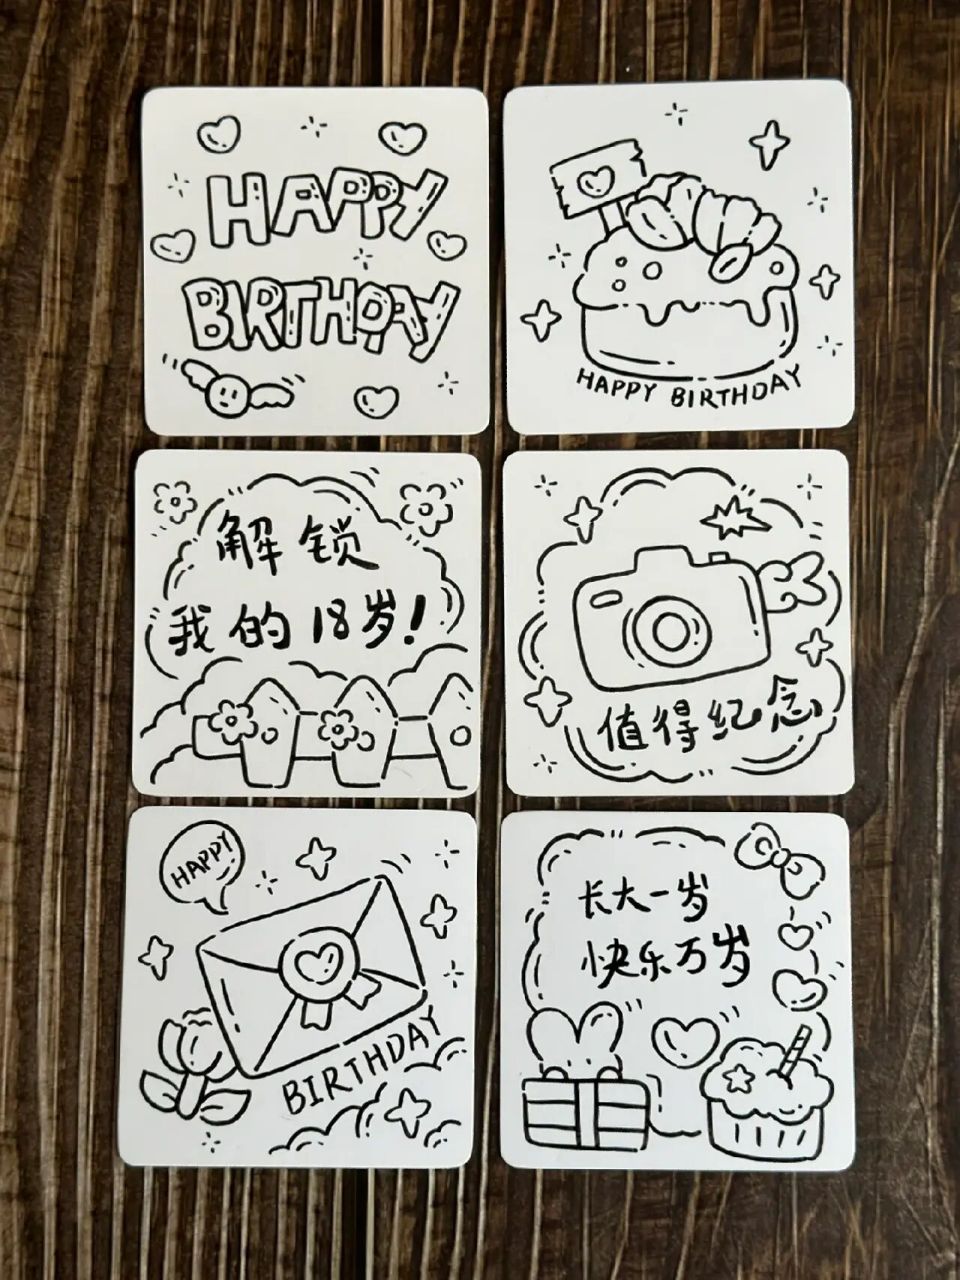 HAPPY
BIRTHDAY
HAPPY BIRTHDAY
解锁
我的18岁!
值得纪念
HAPPY
BIRTHDAY
长大一岁
快乐万岁